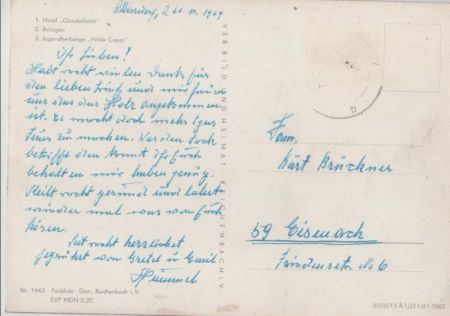 Ebersdorf, d. 20.10.1969
1. Hotel „Gondelfahrt"
2. Anlagen
3. Jugendherberge „Hilde Coppi"
Ihr Lieben!
Habt recht vielen Dank für
den lieben Brief und wir freuen
uns das das Holz angekommen
ist. Es macht doch mehr Spas
Feuer zu machen. Was den Sack
betrifft den könnt Ihr Euch
behalten wir haben genug.
Bleibt recht gesund und laßt
wieder mal was von Euch
hören.
Seit recht herzlichst
gegrüßt von Gretel u Emil
Hummel
Nr. 1443 Farbfoto - Darr, Reichenbach i. V.
EVP MDN 0.20
VERB BILD UND HEIMAT REICHENBACH i. V.
Fam.
Kurt Brückner
59 Eisenach
Friedensstr. No 6
III/26/13 A 1/211/67 5862